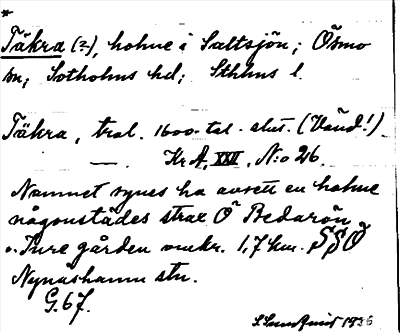 *
Täkra (?), holme i Saltsjön; Ösmo
sn; Sotholms hd; Sthlms l.
Täkra, tral. 1600-tal. slut. (Vänd!)
— Kr A, XXVI, N:o 26.
Namnet synes ha avsett en holme
någonstädes strax Ö Bedarön
o. Ture gården omkr. 1,7 km. SSÖ
Nynäshamn stn.
G. 67.
S. Lundquist 1936